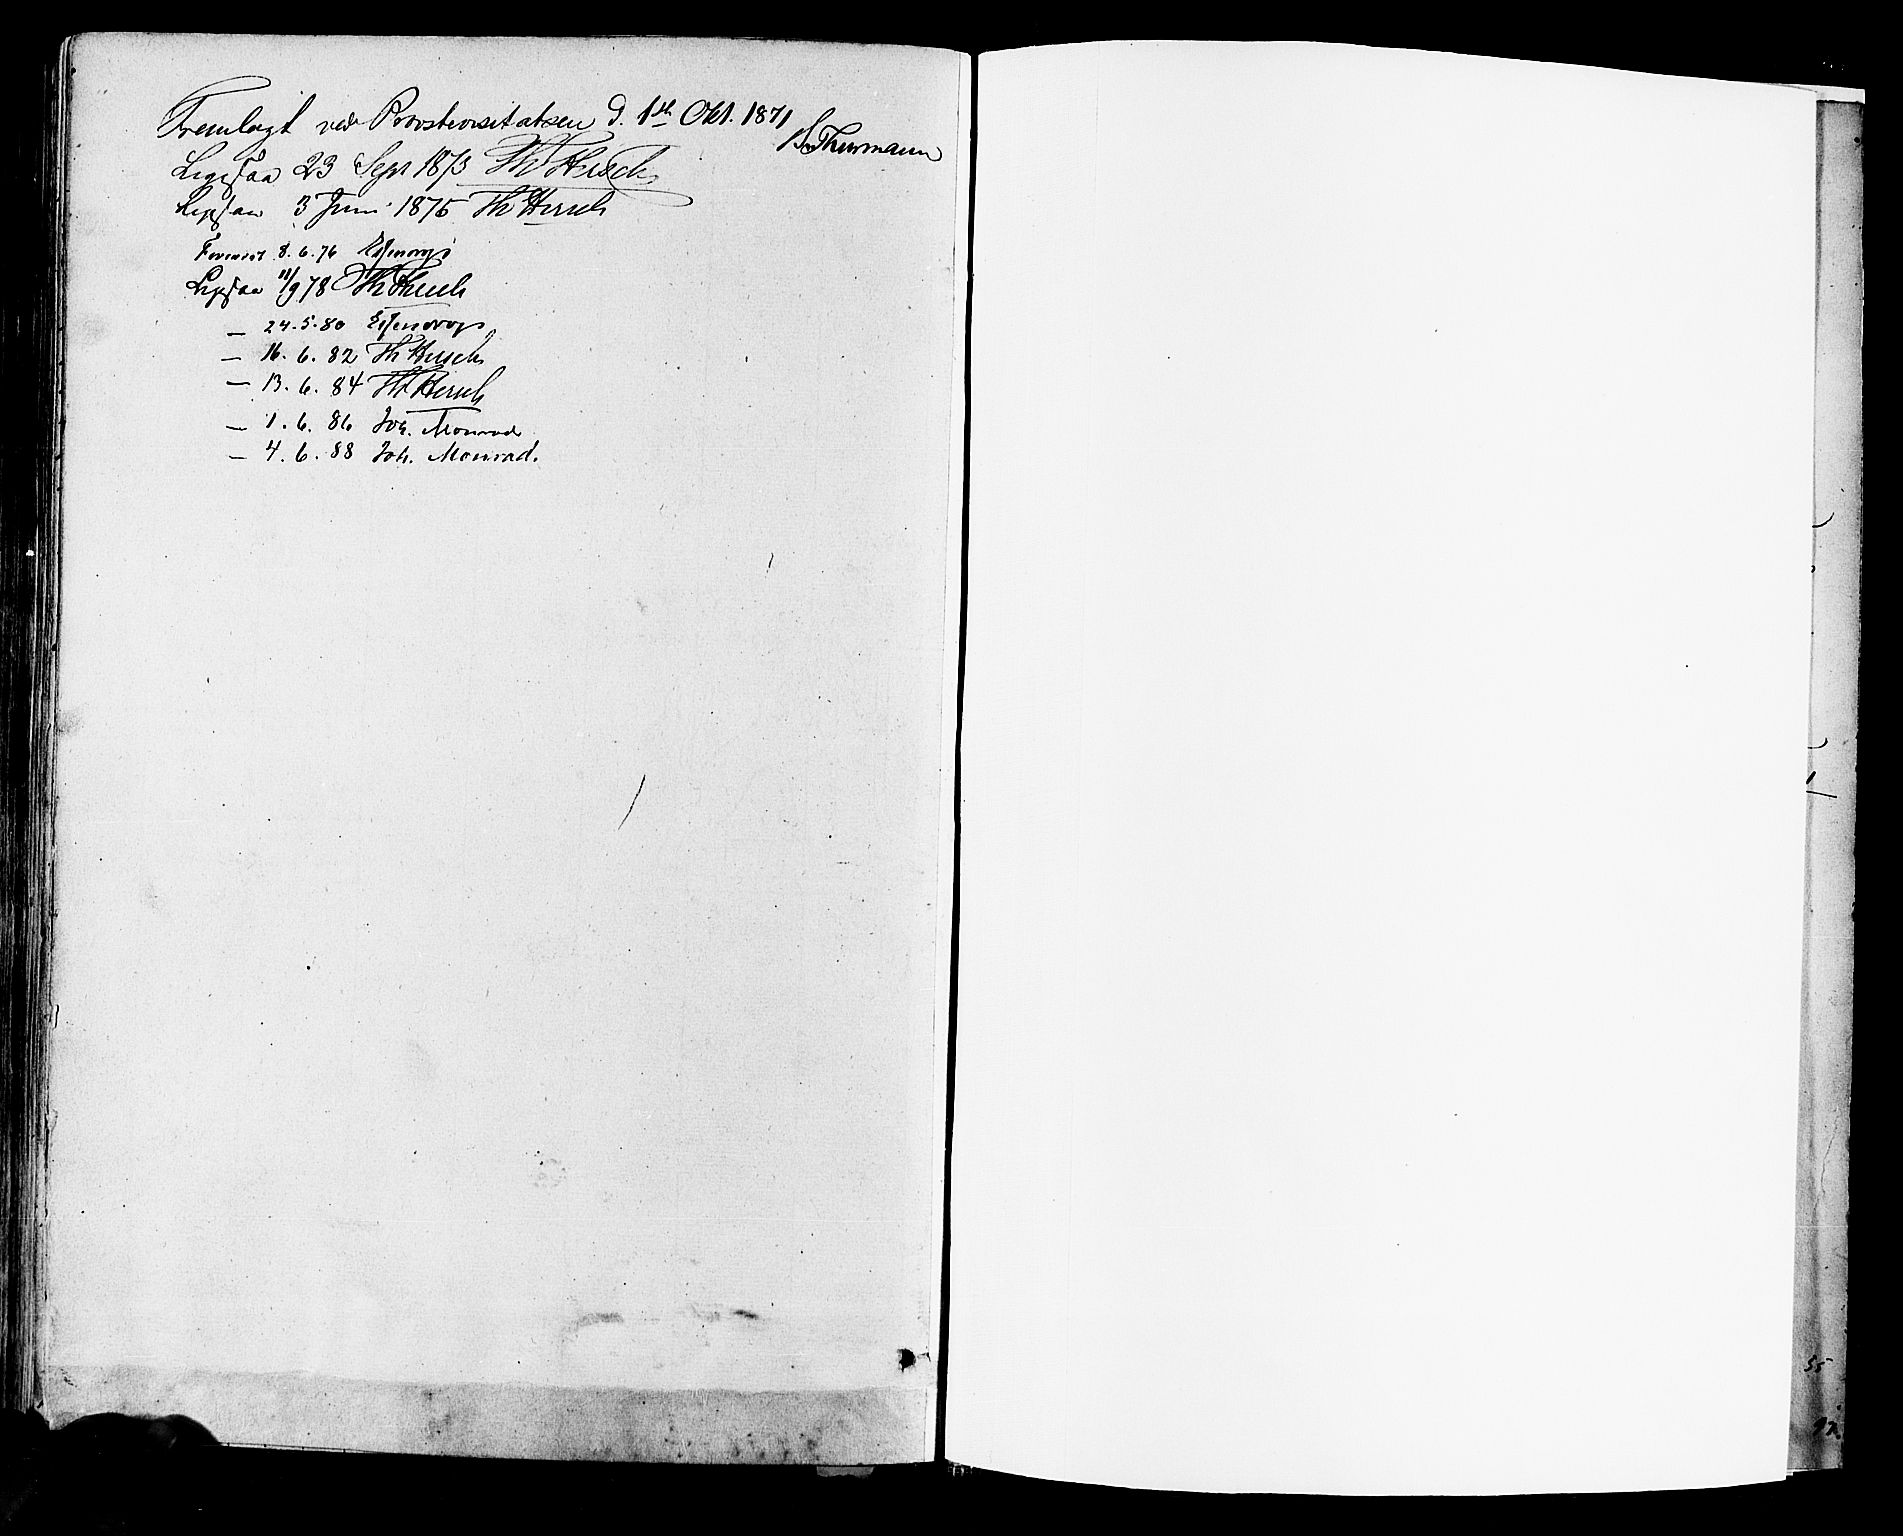 Fremlagt ved Provstevisitatsen d. 1ste Okt. 1871
Thurmann
Ligesaa 23 Sept 1873 Th Hersch
Ligesaa 3 Juni 1875 Th Hersch
Forevist 8. 6. 76
Ligesaa 11/9 78 Th Hersch
— 24. 5. 80
— 16. 6. 82 Th Hersch
— 13. 6. 84 Th Hersch
— 1. 6. 86 Joh. Monrad
— 4. 6. 88 Joh. Monrad.
55